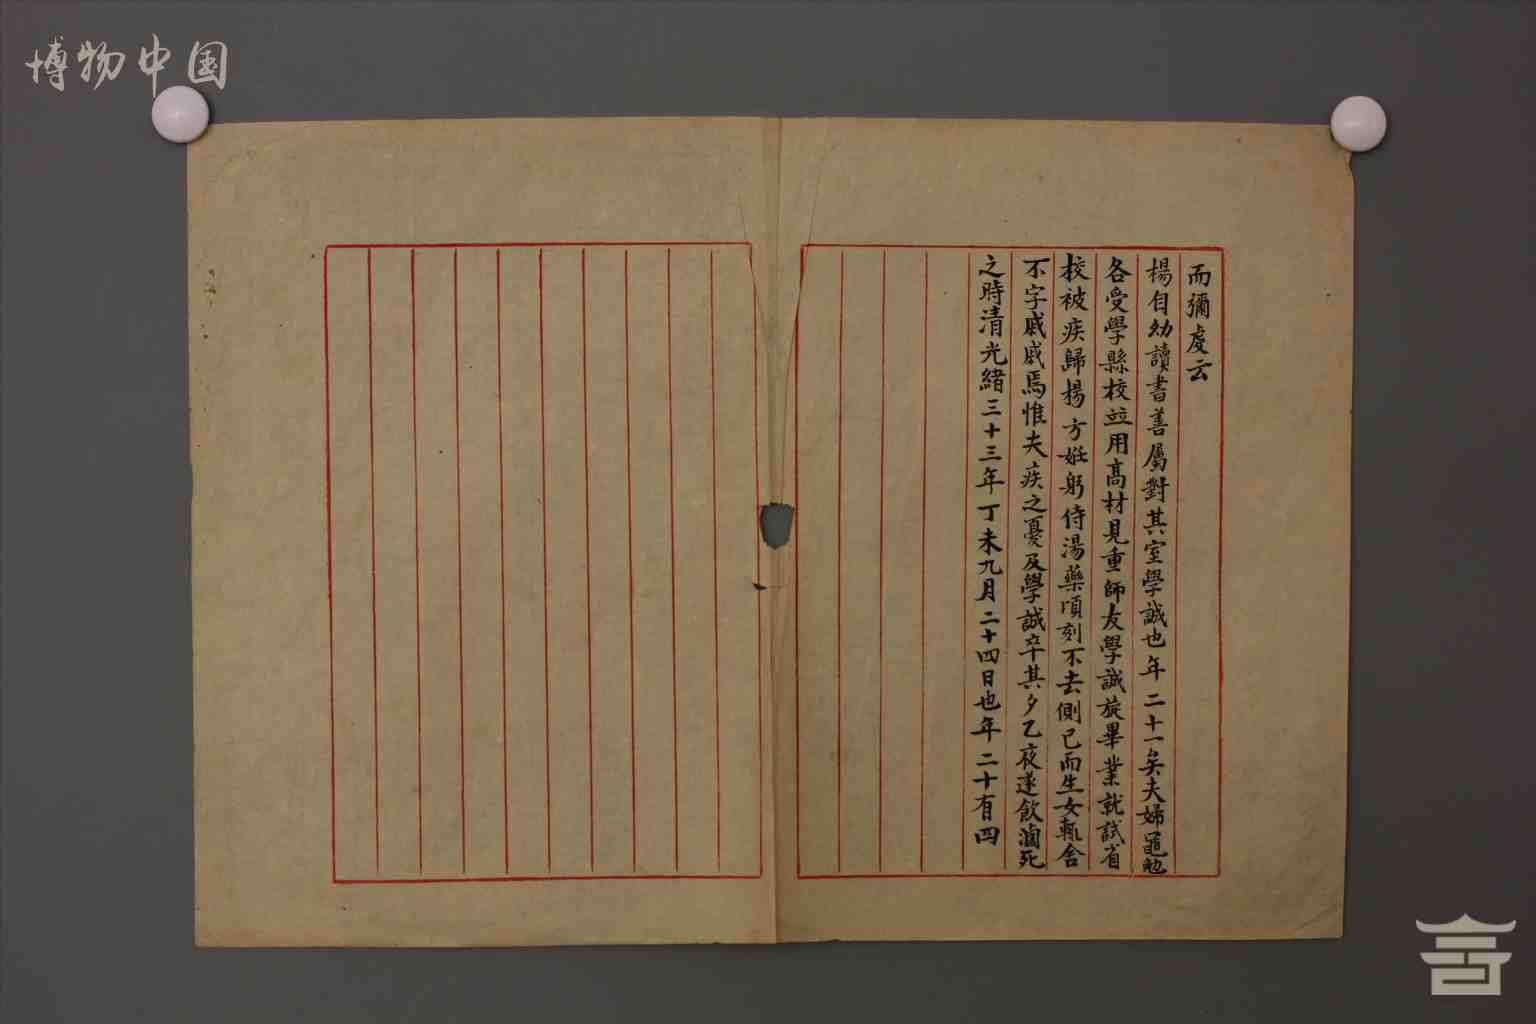 博物中国
而彌虔云
楊自幼讀書善屬對其室學誠也年二十一矣夫婦黽勉
各受學縣校並用高材見重師友學誠旋畢業就試省
校被疾歸楊方姙躬侍湯藥頃刻不去側已而生女輒舍
不字戚戚焉惟夫疾之憂及學誠卒其夕乙夜遂飲滷死
之時清光緒三十三年丁未九月二十四日也年二十有四